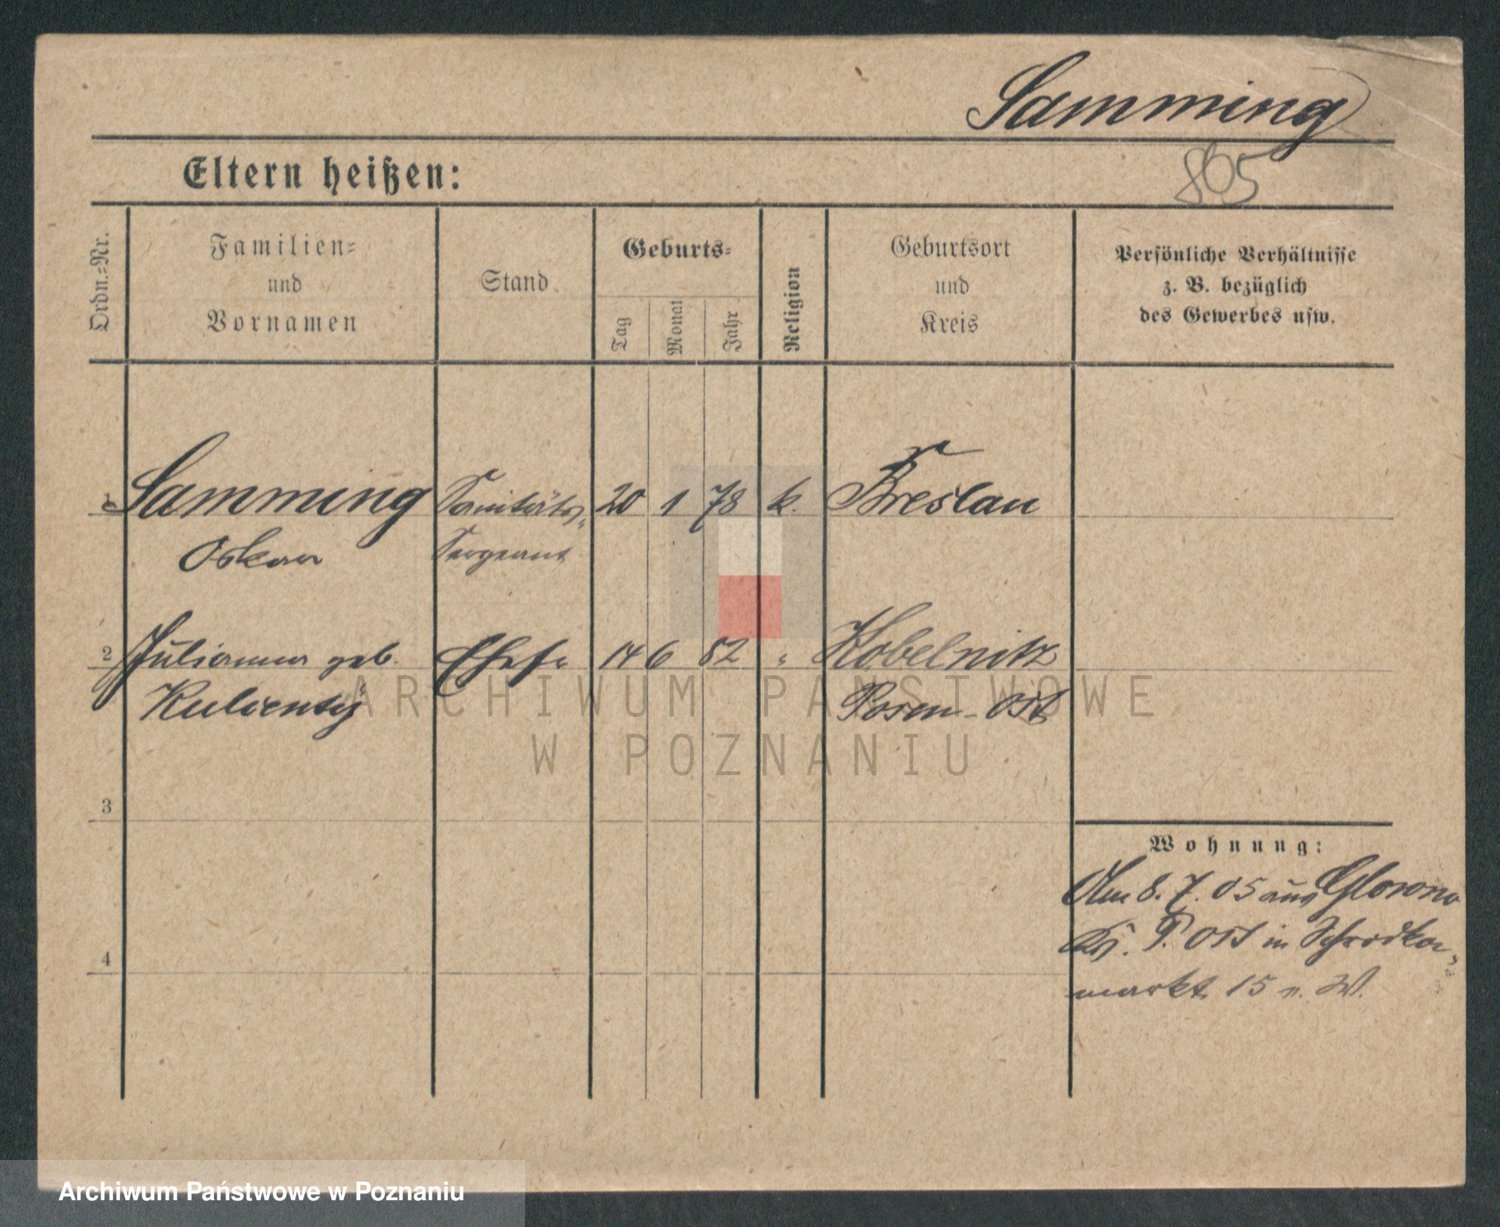 Samming
865
Eltern heißen:
Ordn.-Nr.
Familien-
und
Vornamen
Stand
Geburts-
Tag
Monat
Jahr
Religion
Geburtsort
und
Kreis
Persönliche Verhältnisse
z. B. bezüglich
des Gewerbes usw.
1 Samming Sanitäts- 20 1 78 k. Breslau
Oskar Sergeant
2 Julianna geb. Ehefr. 14 6 82 " Kobelnitz
Posen-Ost
ARCHIWUM PAŃSTWOWE
W POZNANIU
3
Wohnung:
Am 8. 7. 05 aus Glowno
Kr. P. Ost in Schrodka-
4
markt 15 z. W.
Archiwum Państwowe w Poznaniu